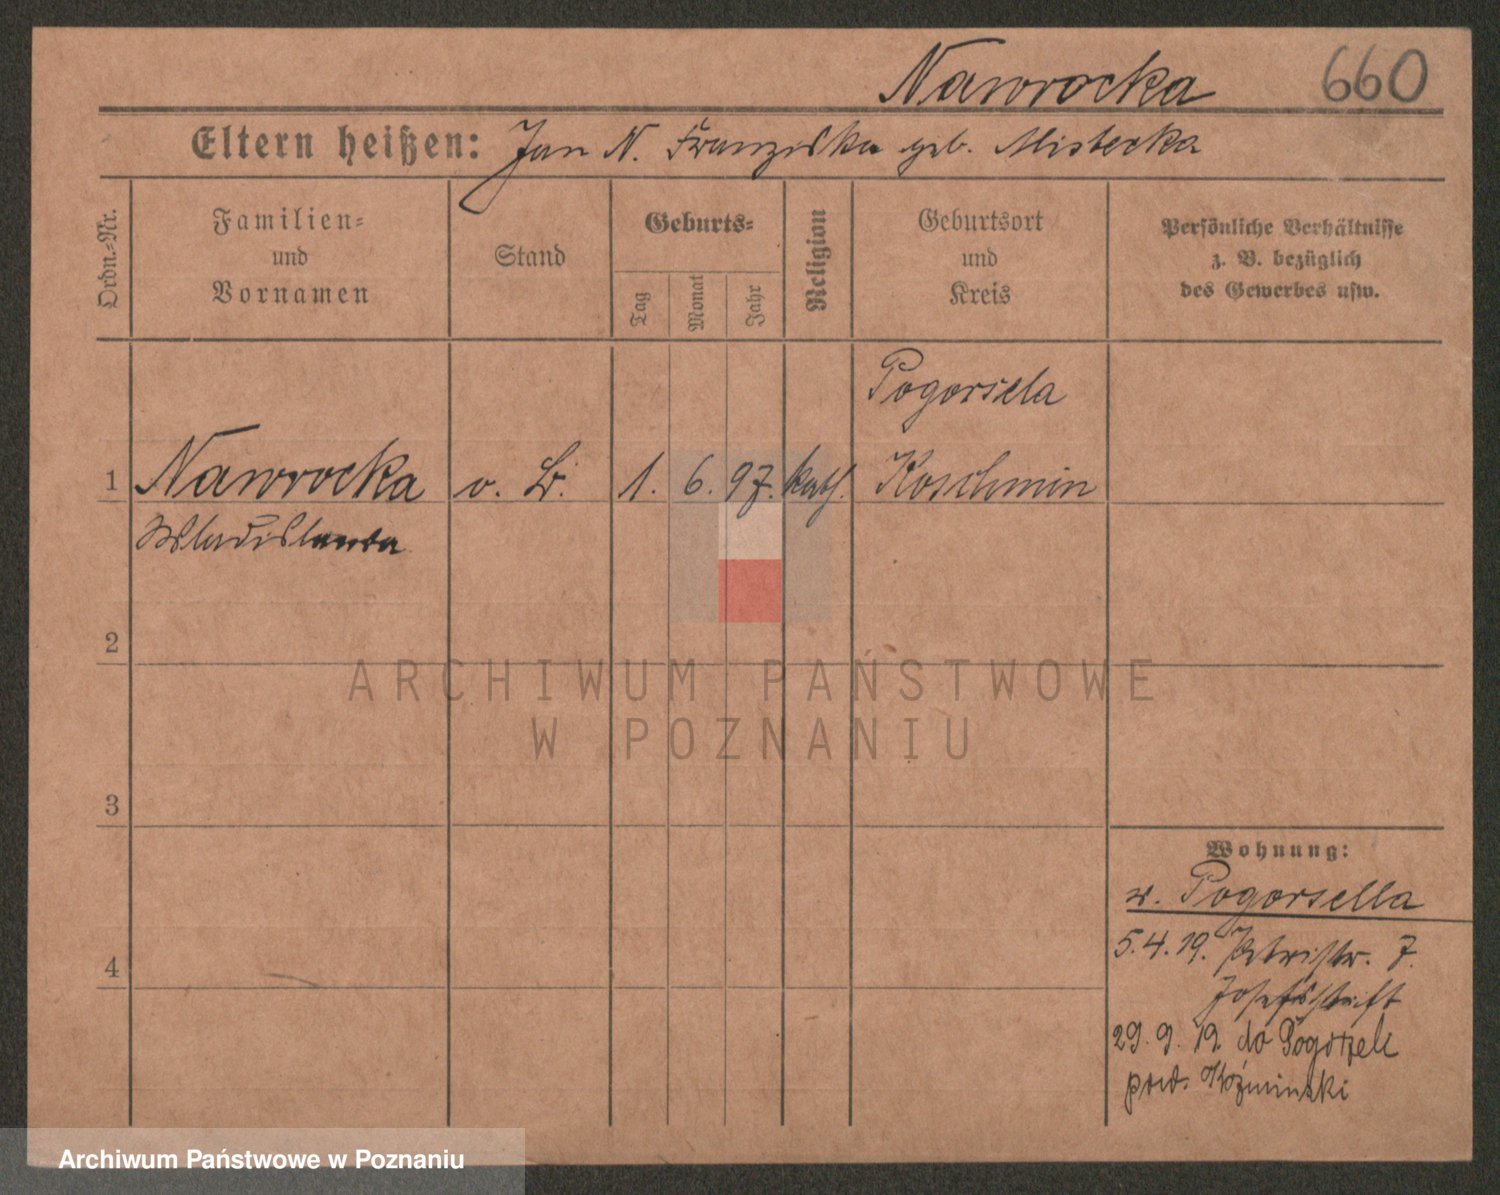 Nawrocka 660
Eltern heißen: Jan N. Franziska geb. Mistecka
Ordn.-Nr.
Familien-
und
Vornamen
Stand
Geburts-
Tag
Monat
Jahr
Religion
Geburtsort
und
Kreis
Persönliche Verhältnisse
z. B. bezüglich
des Gewerbes usw.
Pogorsela
1 Nawrocka o. B. 1. 6. 97. kath. Koschmin
Wladislawa
2
3
4
Wohnung:
v. Pogorsella
5.4.19. Petristr. 7.
Josefsstift
29. 9. 19 do Pogorzeli
pow. Koźminski
ARCHIWUM PAŃSTWOWE
W POZNANIU
Archiwum Państwowe w Poznaniu